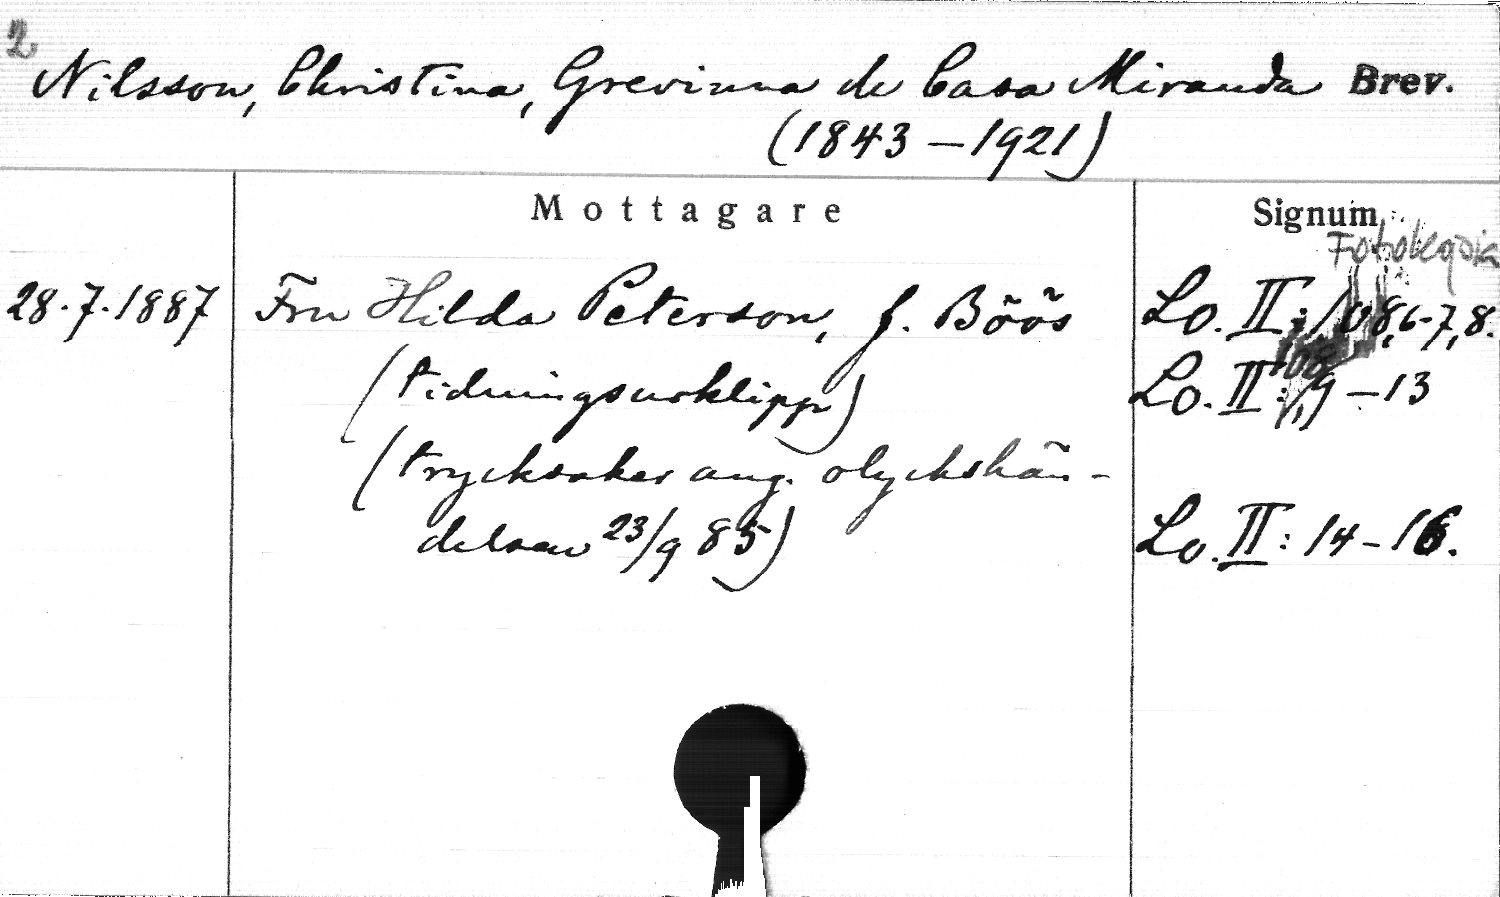 2
Nilsson, Christina, Grevinna de Casa Miranda Brev.
(1843–1921)
Mottagare
Signum
28.7.1887 Fru Hilda Peterson, f. Böös Lo. II: 108,6-7,8.
(tidningsurklipp) Lo. II: 9–13
(trycksaker ang. olyckshän-
delsen 23/9 85) Lo. II: 14–16.